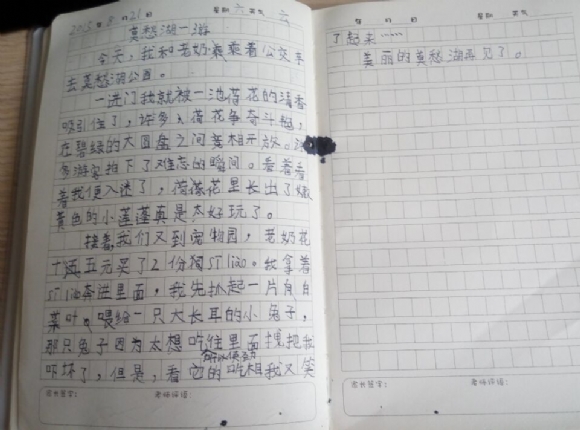 2013年8月21日 星期六 天气云
莫愁湖一游
今天，我和老奶乘着公交车
去莫愁湖公园。
一进门我就被一池荷花的清香
吸引住了，许多荷花争奇斗艳，
在碧绿的大圆盘之间竞相开放。
多游客拍下了难忘的瞬间。看着看
着我便入迷了，荷花里长出了嫩
黄色的小莲蓬真是太好玩了。
接着，我们又到宠物园，老奶花
了五元买了2份
奔进里面，我先扒起一片
菜叶，喂给一只大长耳的小兔子，
那只兔子因为太想吃往里面拽把我
所以使劲
吓坏了，但是，看它的吃相我又笑
家长签字： 老师评语：
年 月 日 星期 天气
了起来……
美丽的莫愁湖再见了。
家长签字： 老师评语：